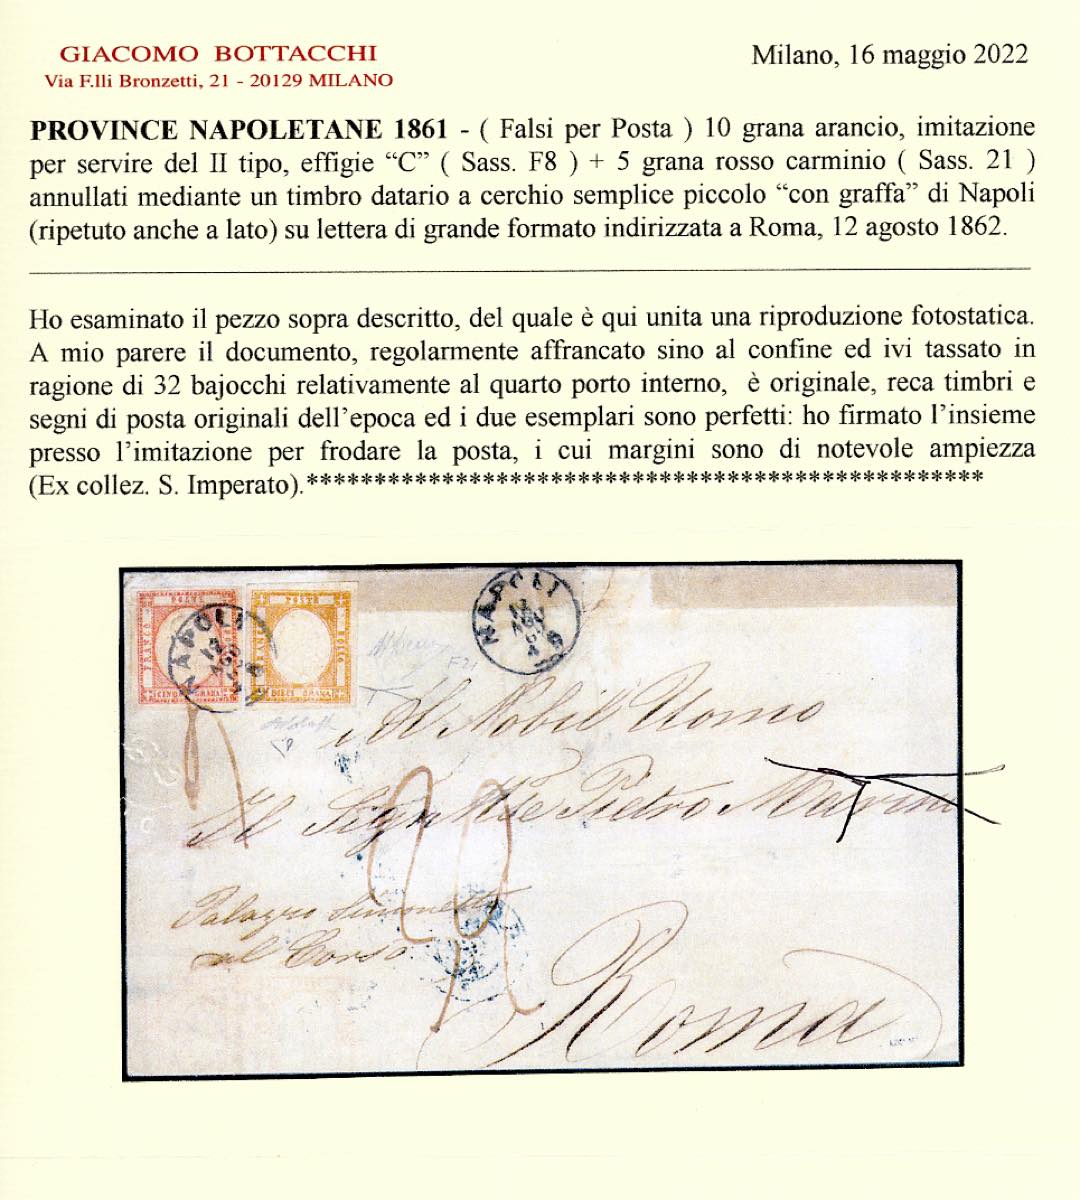 GIACOMO BOTTACCHI
Via F.lli Bronzetti, 21 - 20129 MILANO
Milano, 16 maggio 2022
PROVINCE NAPOLETANE 1861 - ( Falsi per Posta ) 10 grana arancio, imitazione
per servire del II tipo, effigie “C” ( Sass. F8 ) + 5 grana rosso carminio ( Sass. 21 )
annullati mediante un timbro datario a cerchio semplice piccolo “con graffa” di Napoli
(ripetuto anche a lato) su lettera di grande formato indirizzata a Roma, 12 agosto 1862.
Ho esaminato il pezzo sopra descritto, del quale è qui unita una riproduzione fotostatica.
A mio parere il documento, regolarmente affrancato sino al confine ed ivi tassato in
ragione di 32 bajocchi relativamente al quarto porto interno, è originale, reca timbri e
segni di posta originali dell’epoca ed i due esemplari sono perfetti: ho firmato l’insieme
presso l’imitazione per frodare la posta, i cui margini sono di notevole ampiezza
(Ex collez. S. Imperato).**************************************************
POSTE
FRANCO
CINQUE GRANA
POSTE
BOLLO
DIECI GRANA
NAPOLI
12
AGO
NAPOLI
12
AGO
Al Nobil Uomo
Il Sigr Mse Pietro
Palazzo Simonetti
al Corso
Roma